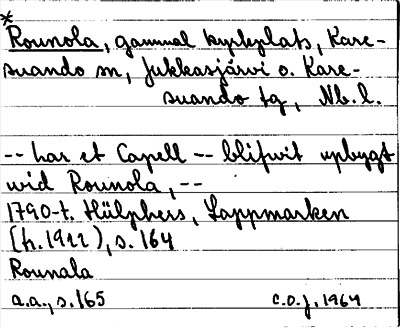 *
Rounola, gammal kyrkplats, Kare-
suando sn, Jukkasjärvi o. Kare-
suando tg, Nb. l.
-- har et Capell -- blifwit upbygt
wid Rounola, --
1790-t. Hülphers, Lappmarken
(h. 1922), s. 164
Rounala
a.a., s. 165 C.O.J. 1964